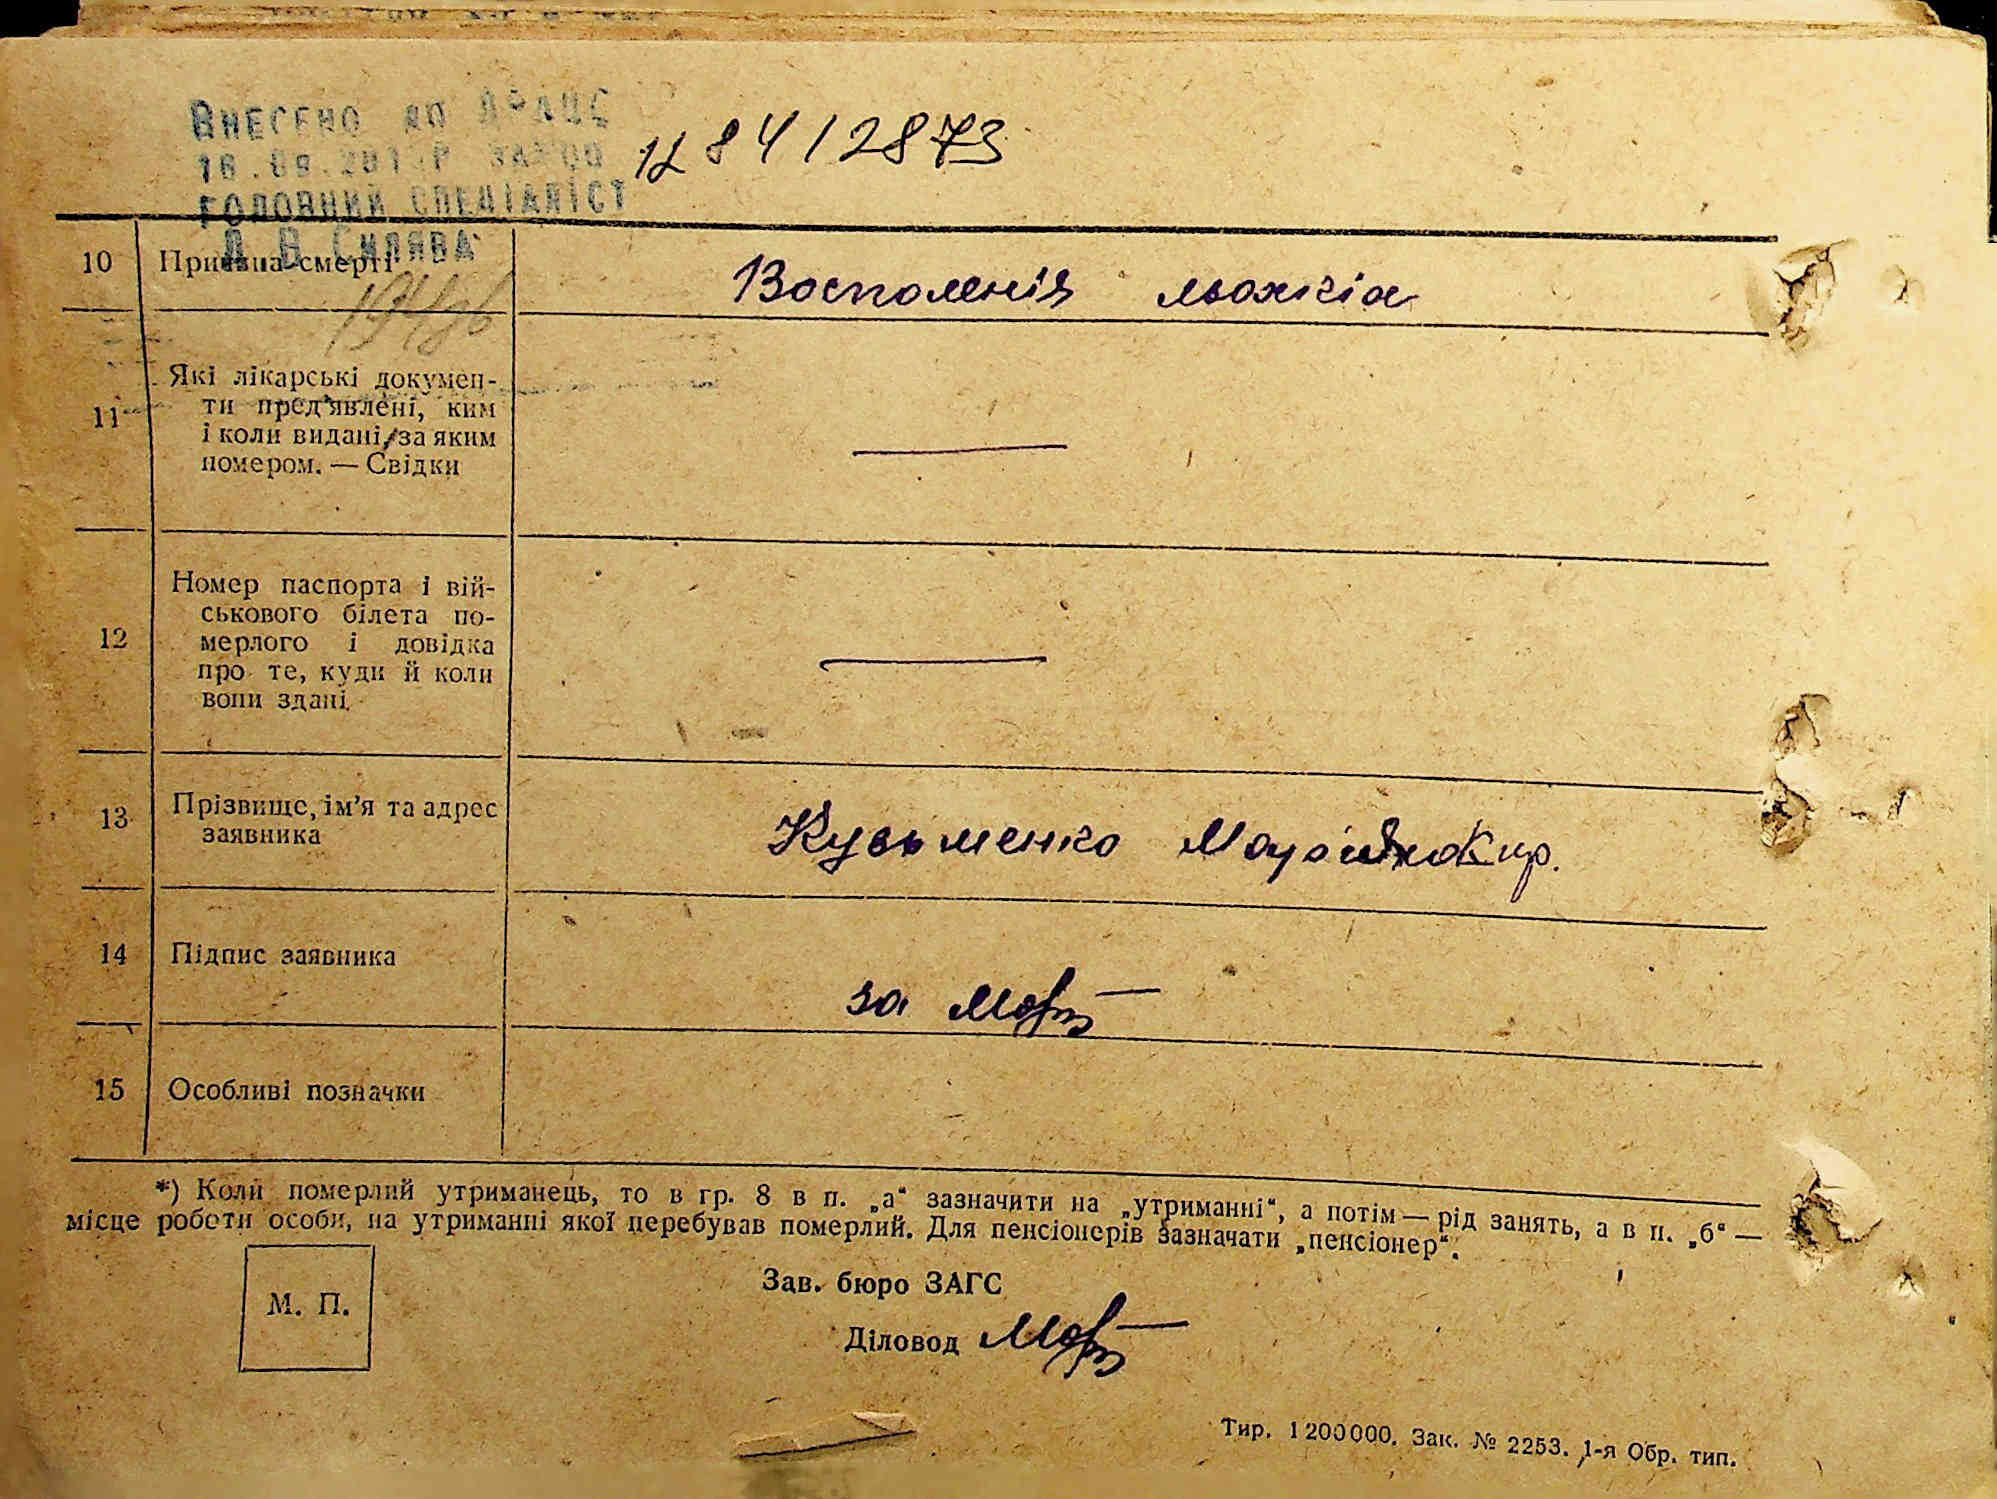 Внесено до ДРАЦС
ГОЛОВНИЙ СПЕЦІАЛІСТ
Д В Силява
12873
10 Причина смерті Воспаленія льохкіх
11 Які лікарські докумен-
ти пред'явлені, ким
і коли видані, за яким
номером. — Свідки —
12 Номер паспорта і вій-
ськового білета по-
мерлого і довідка
про те, куди й коли
вони здані. —
13 Прізвище, ім'я та адрес
заявника Кузьменко Кир.
14 Підпис заявника за
15 Особливі позначки
*) Коли померлий утриманець, то в гр. 8 в п. „а“ зазначити на „утриманні“, а потім — рід занять, а в п. „б“ —
місце роботи особи, на утриманні якої перебував померлий. Для пенсіонерів зазначати „пенсіонер“.
М. П.
Зав. бюро ЗАГС
Діловод
Тир. 1200000. Зак. № 2253. 1-я Обр. тип.